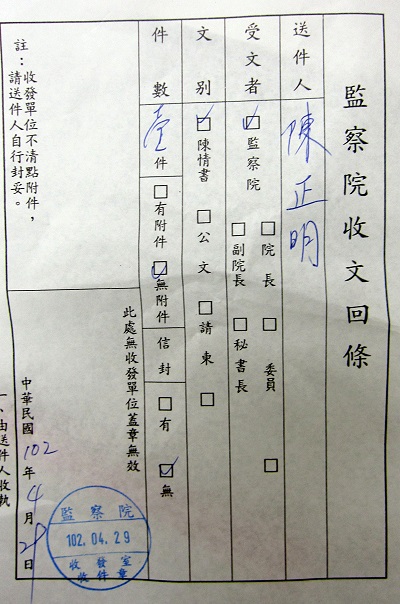 監察院收文回條
送件人 陳正明
受文者 ☑監察院 □院長 □委員 □
□副院長 □秘書長
文別 ☑陳情書 □公文 □請柬 □
件數 壹件 □有附件 ☑無附件 信封 □有 ☑無
此處無收發單位蓋章無效
註：收發單位不清點附件，
請送件人自行封妥。
中華民國102年4月29日
監察院
102.04.29
收發室
收件章
一、由送件人收執